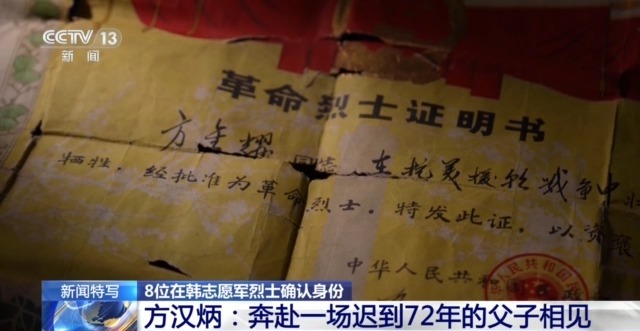 CCTV 13
新闻
革命烈士证明书
方金耀 同志 在抗美援朝战争中壮
牺牲,经批准为革命烈士。特发此证,以资褒
中华人民共和
人民共和国
新闻特写
8位在韩志愿军烈士确认身份
方汉炳:奔赴一场迟到72年的父子相见